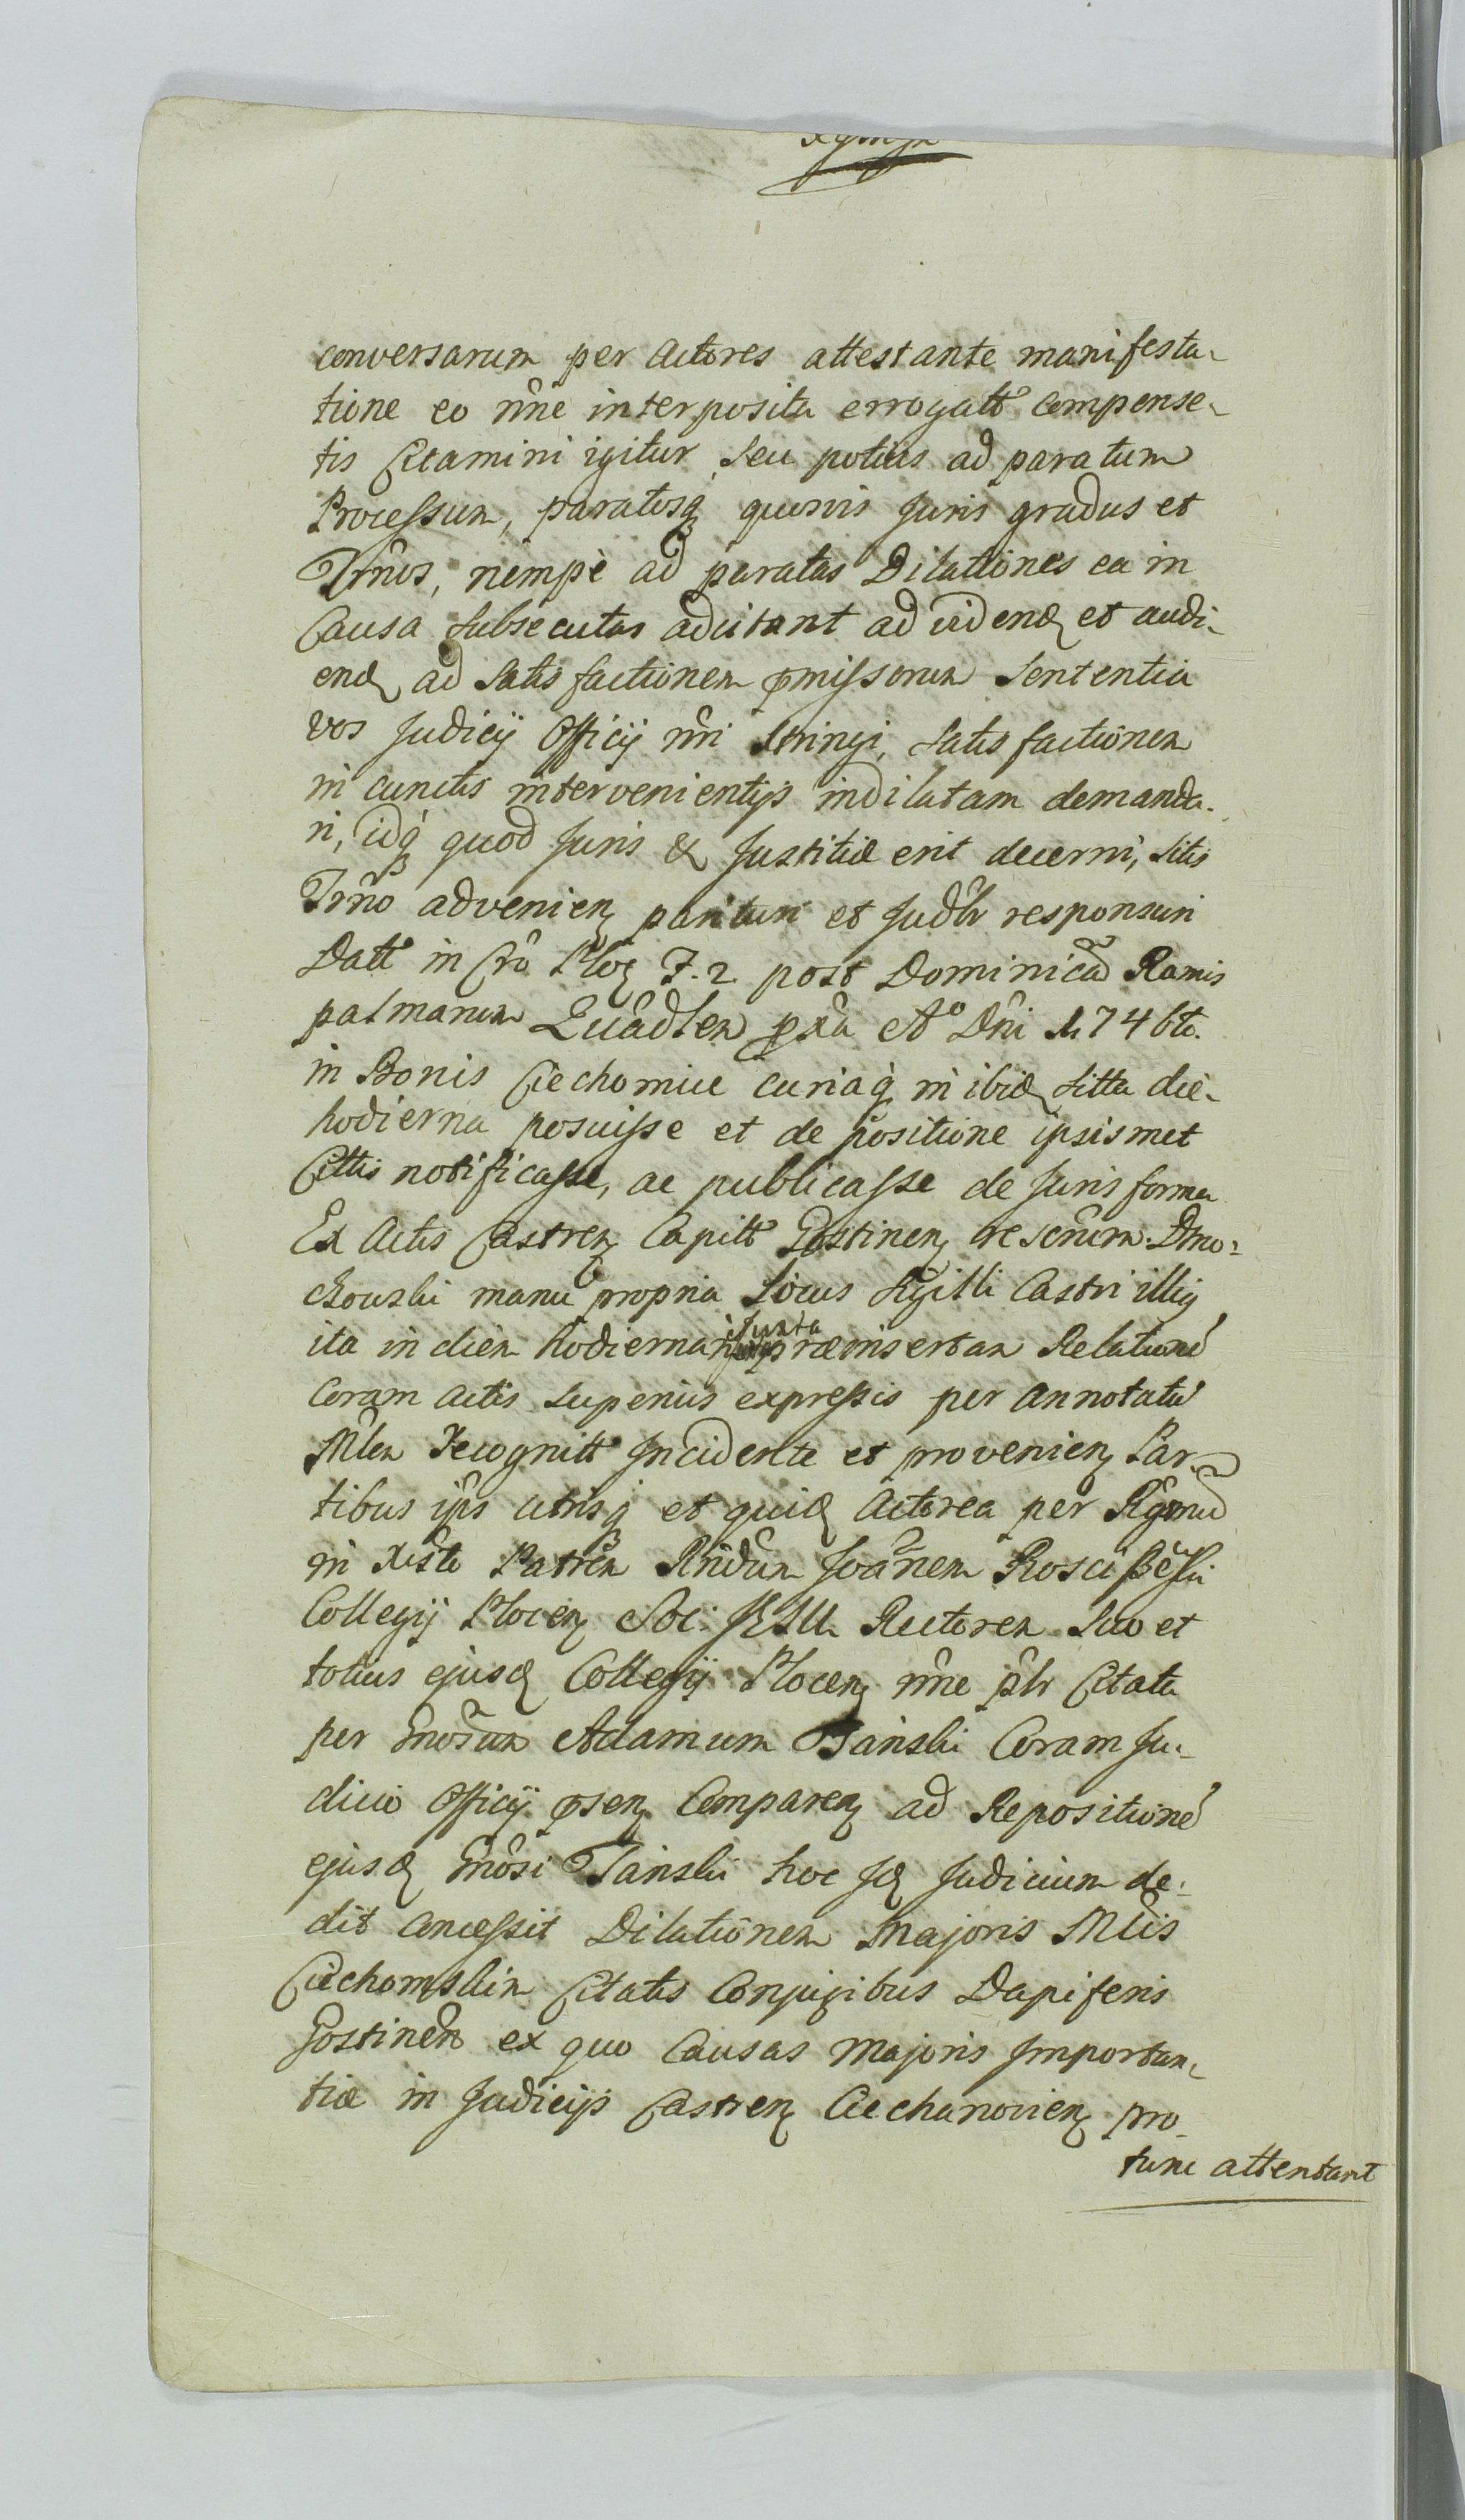 conversarum per Actores attestante manifesta-
tione eo nñe interposita errogatt° compense-
tis Citamini igitur, seu potius ad paratum
Processum, paratosq quosvis Juris gradus et
Trños, nempè ad paratas Dilationes ea in
Causa subsecutas adcitant ad videnð et audi-
enð ad satisfactionem pmissorum Sententia
vos Judicij Officij nr̃i stringi, satisfactionem
in cunctis intervenientijs indilatam demanda-
ri, idq quod Juris & Justitiæ erit decerni, sitis
Trño advenien parituri et Judlr responsuri
Datt° in Cro Ploc F. 2. post Dominicã Ramis
palmarum Quadlem pxa A° Dñi M. 746to.
in Bonis Ciechomice curiaq in ibið sitta die
hodierna posuisse et de positione ipsismet
Cittis notificasse, ac publicasse de Juris forma
Ex Actis Castren Capitt° Gostinen rescrũm Dmo-
chowski manu propria Locus Sigilli Castri illig
ita in diem hodiernam juxta præinsertam Relationẽ
Coram Actis superius expressis per annotatũ
Mlem recognitt° Incidente et provenien Par-
tibus ips̃ utrisq et quið Actorea per Rgmũ
in Xsto Patrem Rñdum Joañem Roscisze͂ski
Collegij Plocen Soc: JESU Rectorem Suo et
totius ejusð Collegij Plocen nñe p̃lr Citata
per Gñosum Adamum Tański Coram Ju-
dicio Officij psen Comparen ad Repositionẽ
ejusð Gñosi Tański hoc Jð Judicium de-
dit Concessit Dilationem Majoris Mlis
Ciechomskim Citatis Conjugibus Dapiferis
Gostinen ex quo Causas Majoris Importan-
tiæ in Judicijs Castren Ciechanovien pro
tunc attentant